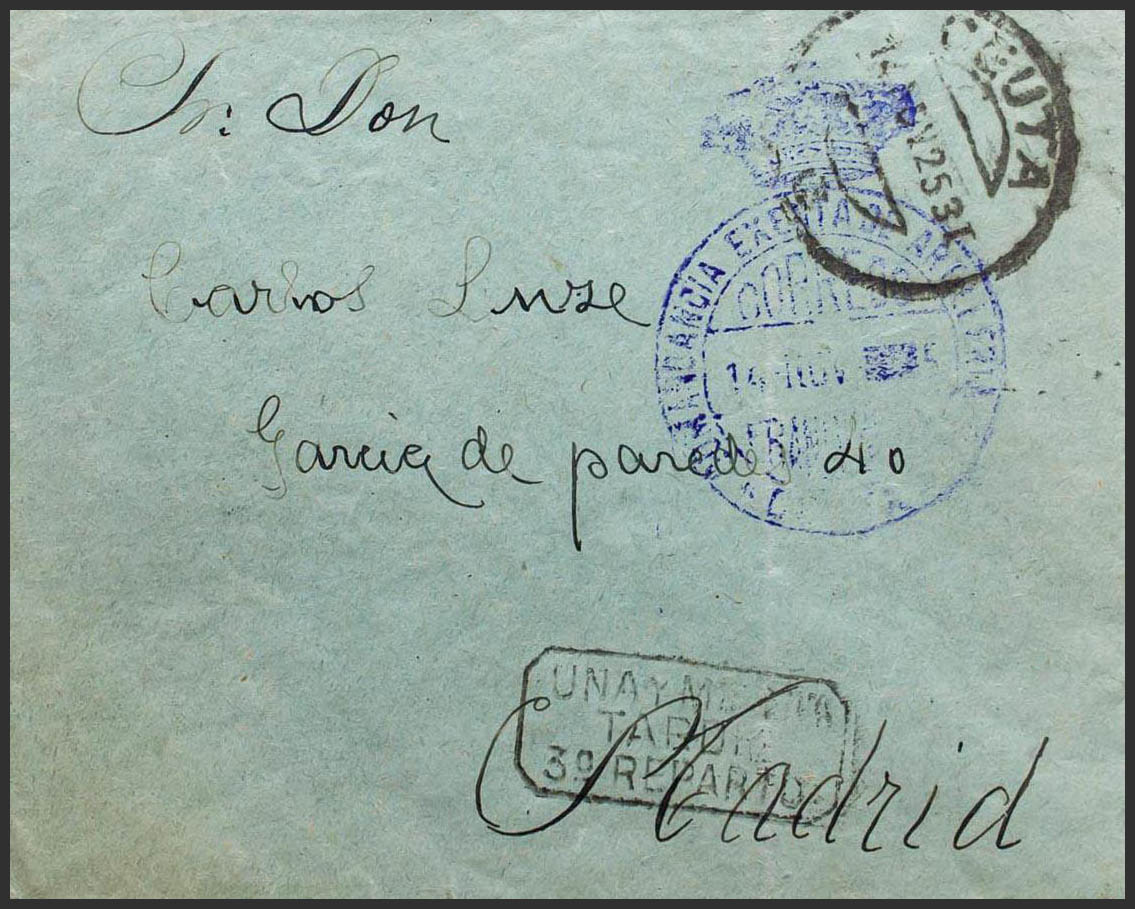 Sr: Don
Carlos Luze
Garcia de paredes 40
Madrid
CEUTA
NOV 25 3T
COMANDANCIA EXENTA DE
CORREOS
14 NOV
UNA Y
TARDE
3º REPARTO